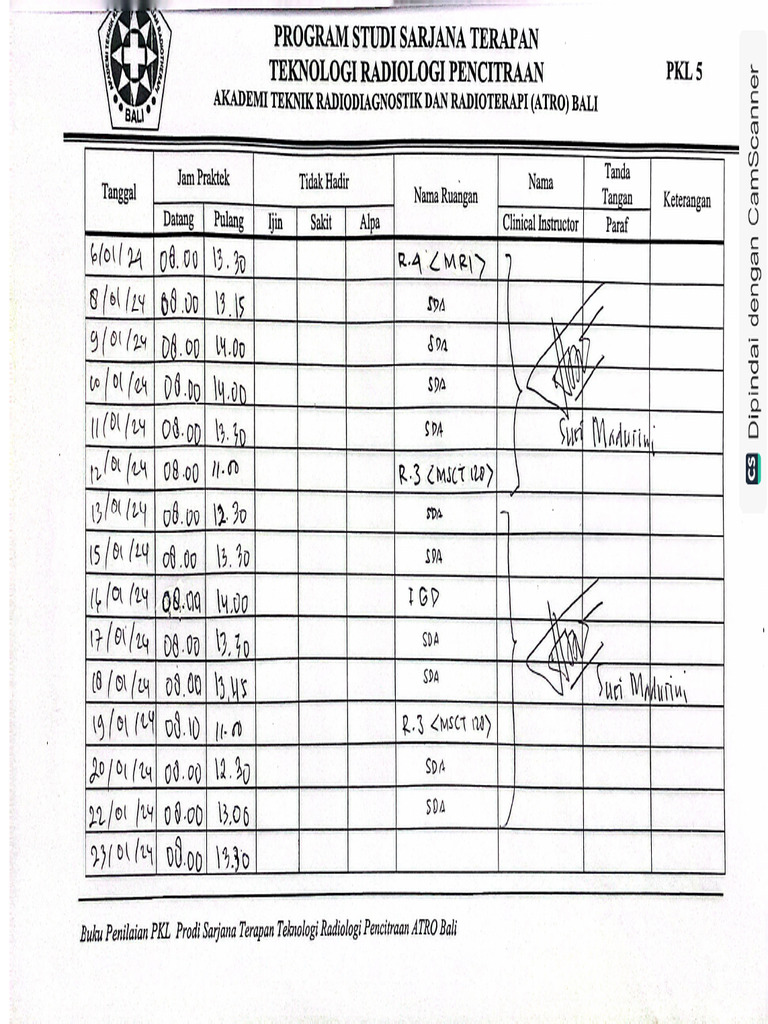 BALI
PROGRAM STUDI SARJANA TERAPAN
TEKNOLOGI RADIOLOGI PENCITRAAN
AKADEMI TEKNIK RADIODIAGNOSTIK DAN RADIOTERAPI (ATRO) BALI
PKL 5
Tanggal Jam Praktek Tidak Hadir Nama Ruangan Nama Tanda Tangan Keterangan
Datang Pulang Ijin Sakit Alpa Clinical Instructor Paraf
6/01/24 08.00 13.30 R.4 <MRI>
8/01/24 08.00 13.15 SDA
9/01/24 08.00 14.00 SDA
10/01/24 08.00 14.00 SDA
11/01/24 08.00 13.30 SDA Suri Madurini
12/01/24 08.00 11.00 R.3 <MSCT 128>
13/01/24 08.00 12.30 SDA
15/01/24 08.00 13.30 SDA
16/01/24 08.00 14.00 IGD
17/01/24 08.00 13.30 SDA
18/01/24 08.00 13.45 SDA Suri Madurini
19/01/24 08.10 11.00 R.3 <MSCT 128>
20/01/24 08.00 12.30 SDA
22/01/24 08.00 13.06 SDA
23/01/24 08.00 13.30
Buku Penilaian PKL Prodi Sarjana Terapan Teknologi Radiologi Pencitraan ATRO Bali
CS Dipindai dengan CamScanner